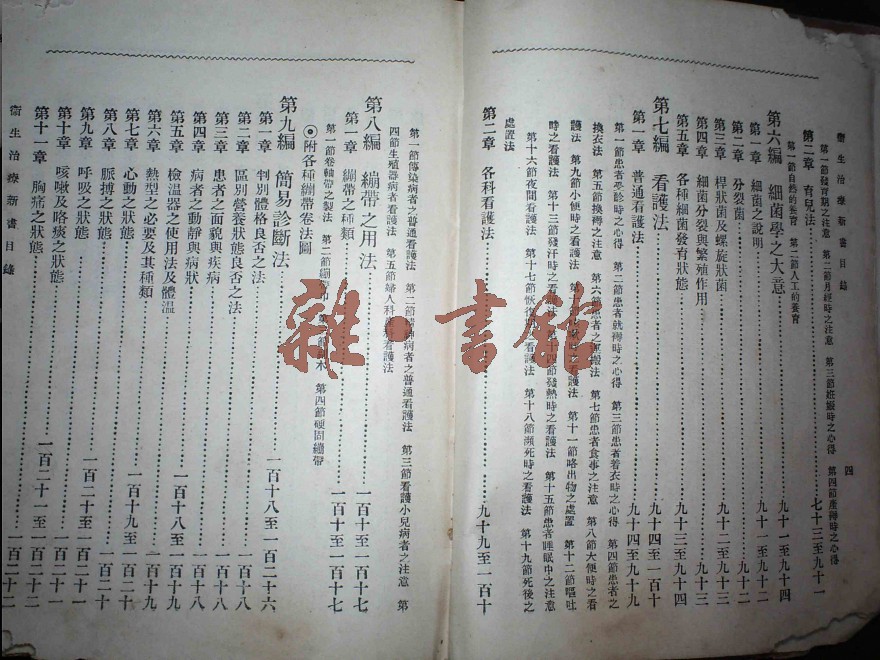 衞生治療新書目錄
四
第一節發育期之注意 第二節月經時之注意 第三節妊娠時之心得 第四節產褥時之心得
第二章 育兒法 七十三至九十一
第一節自然的養育 第二節人工的養育
第六編 細菌學之大意 九十一至九十四
第一章 細菌之說明 九十一至九十二
第二章 分裂菌 九十二
第三章 桿狀菌及螺旋狀菌 九十二至九十三
第四章 細菌分裂與繁殖作用 九十三
第五章 各種細菌發育狀態 九十三至九十四
第七編 看護法 九十四至一百十
第一章 普通看護法 九十四至九十九
第一節患者受診時之心得 第二節患者就褥時之心得 第三節患者着衣時之心得 第四節患者之
換衣法 第五節換褥之注意 第六節患者之運搬法 第七節患者食事之注意 第八節大便時之看
護法 第九節小便時之看護法 第十一節咯出物之處置 第十二節嘔吐
時之看護法 第十三節發汗時之看護法 第十四節發熱時之看護法 第十五節患者睡眠中之注意
第十六節夜間看護法 第十七節恢復期看護法 第十八節瀕死時之看護法 第十九節死後之
處置法
第二章 各科看護法 九十九至一百十
第一節傳染病者之普通看護法 第二節精神病者之普通看護法 第三節看護小兒病者之注意 第
四節生殖器病者看護法 第五節婦人科 看護法
第八編 繃帶之用法 一百十至一百十七
第一章 繃帶之種類 一百十至一百十七
第一節卷軸帶之製法 第二節繃帶巾 第四節硬固繃帶
◉附各種繃帶卷法圖
第九編 簡易診斷法 一百十八至一百二十六
第一章 判別體格良否之法 一百十八
第二章 區別營養狀態良否之法 一百十八
第三章 患者之面貌與疾病 一百十八
第四章 病者之動靜與病狀 一百十八
第五章 檢溫器之使用法及體溫 一百十八至一百十九
第六章 熱型之必要及其種類 一百十九
第七章 心動之狀態 一百十九至一百二十
第八章 脈搏之狀態 一百二十
第九章 呼吸之狀態 一百二十至一百二十一
第十章 咳嗽及咯痰之狀態 一百二十一
第十一章 胸痛之狀態 一百二十一至一百二十二
衞生治療新書目錄
雜·書館